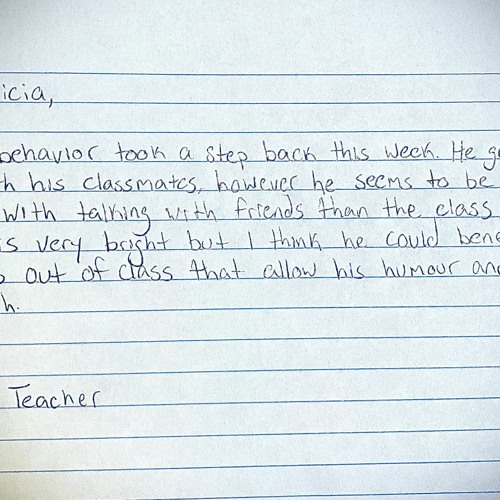 icia,
behavior took a step back this week. He g
h his classmates, however he seems to be
with talking with friends than the class
is very bright but I think he could bene
out of class that allow his humour an
h.
Teacher